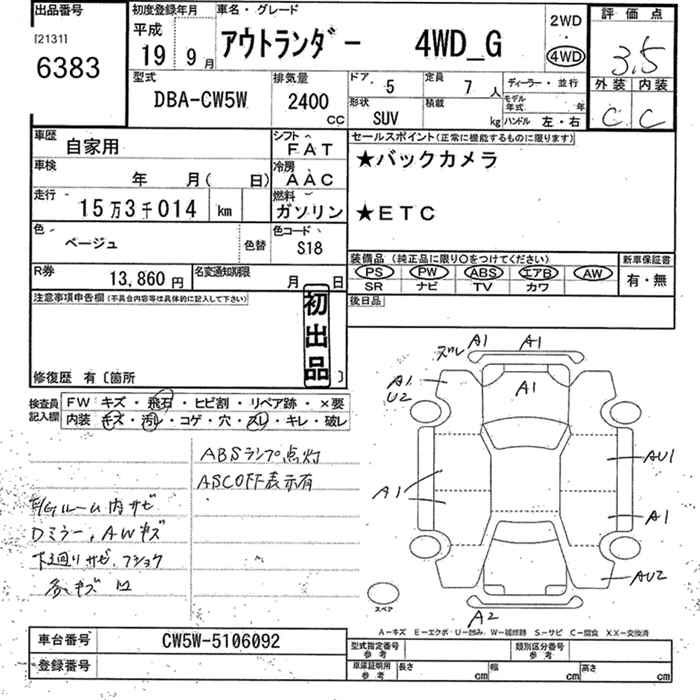 出品番号
[2131]
6383
初度登録年月
平成
19 9月
車名・グレード
アウトランダー 4WD_G
2WD
4WD
評価点
3.5
外装 内装
C C
型式
DBA-CW5W
排気量
2400
CC
ドア 5
定員 7人
ディーラー・並行
形状
SUV
積載 kg
モデル年式 年
ハンドル 左・右
車歴
自家用
シフト
FAT
セールスポイント(正常に機能するものに限ります)
★バックカメラ
★ETC
車検
年 月( 日)
冷房
AAC
走行
15万3千014 km
燃料
ガソリン
色
ベージュ
色替
色コード
S18
装備品 (純正品に限り○をつけてください)
PS PW ABS エアB AW
SR ナビ TV カワ
新車保証書
有・無
R券
13,860 円
名変通知期限
月 日
後日品
注意事項申告欄(不具合内容等は具体的に記入して下さい)
初出品
修復歴 有〔箇所 〕
検査員記入欄
FW キズ・飛石・ヒビ割・リペア跡・×要
内装 キズ・汚レ・コゲ・穴・スレ・キレ・破レ
ABSランプ点灯
ASCOFF表示有
E/Gルーム内サビ
Dミラー,AWキズ
下廻りサビ,フショク
多キズ凹
ズレ A1 A1
A1
U2
A1
A1
AU1
A1
AU2
A2
スペア
A-キズ E-エクボ U-凹み W-補修跡 S-サビ C-腐食 XX-交換済
車台番号 CW5W-5106092
登録番号
型式指定番号
参考
類別区分番号
参考
車庫証明用
参考
長さ cm
幅 cm
高さ cm